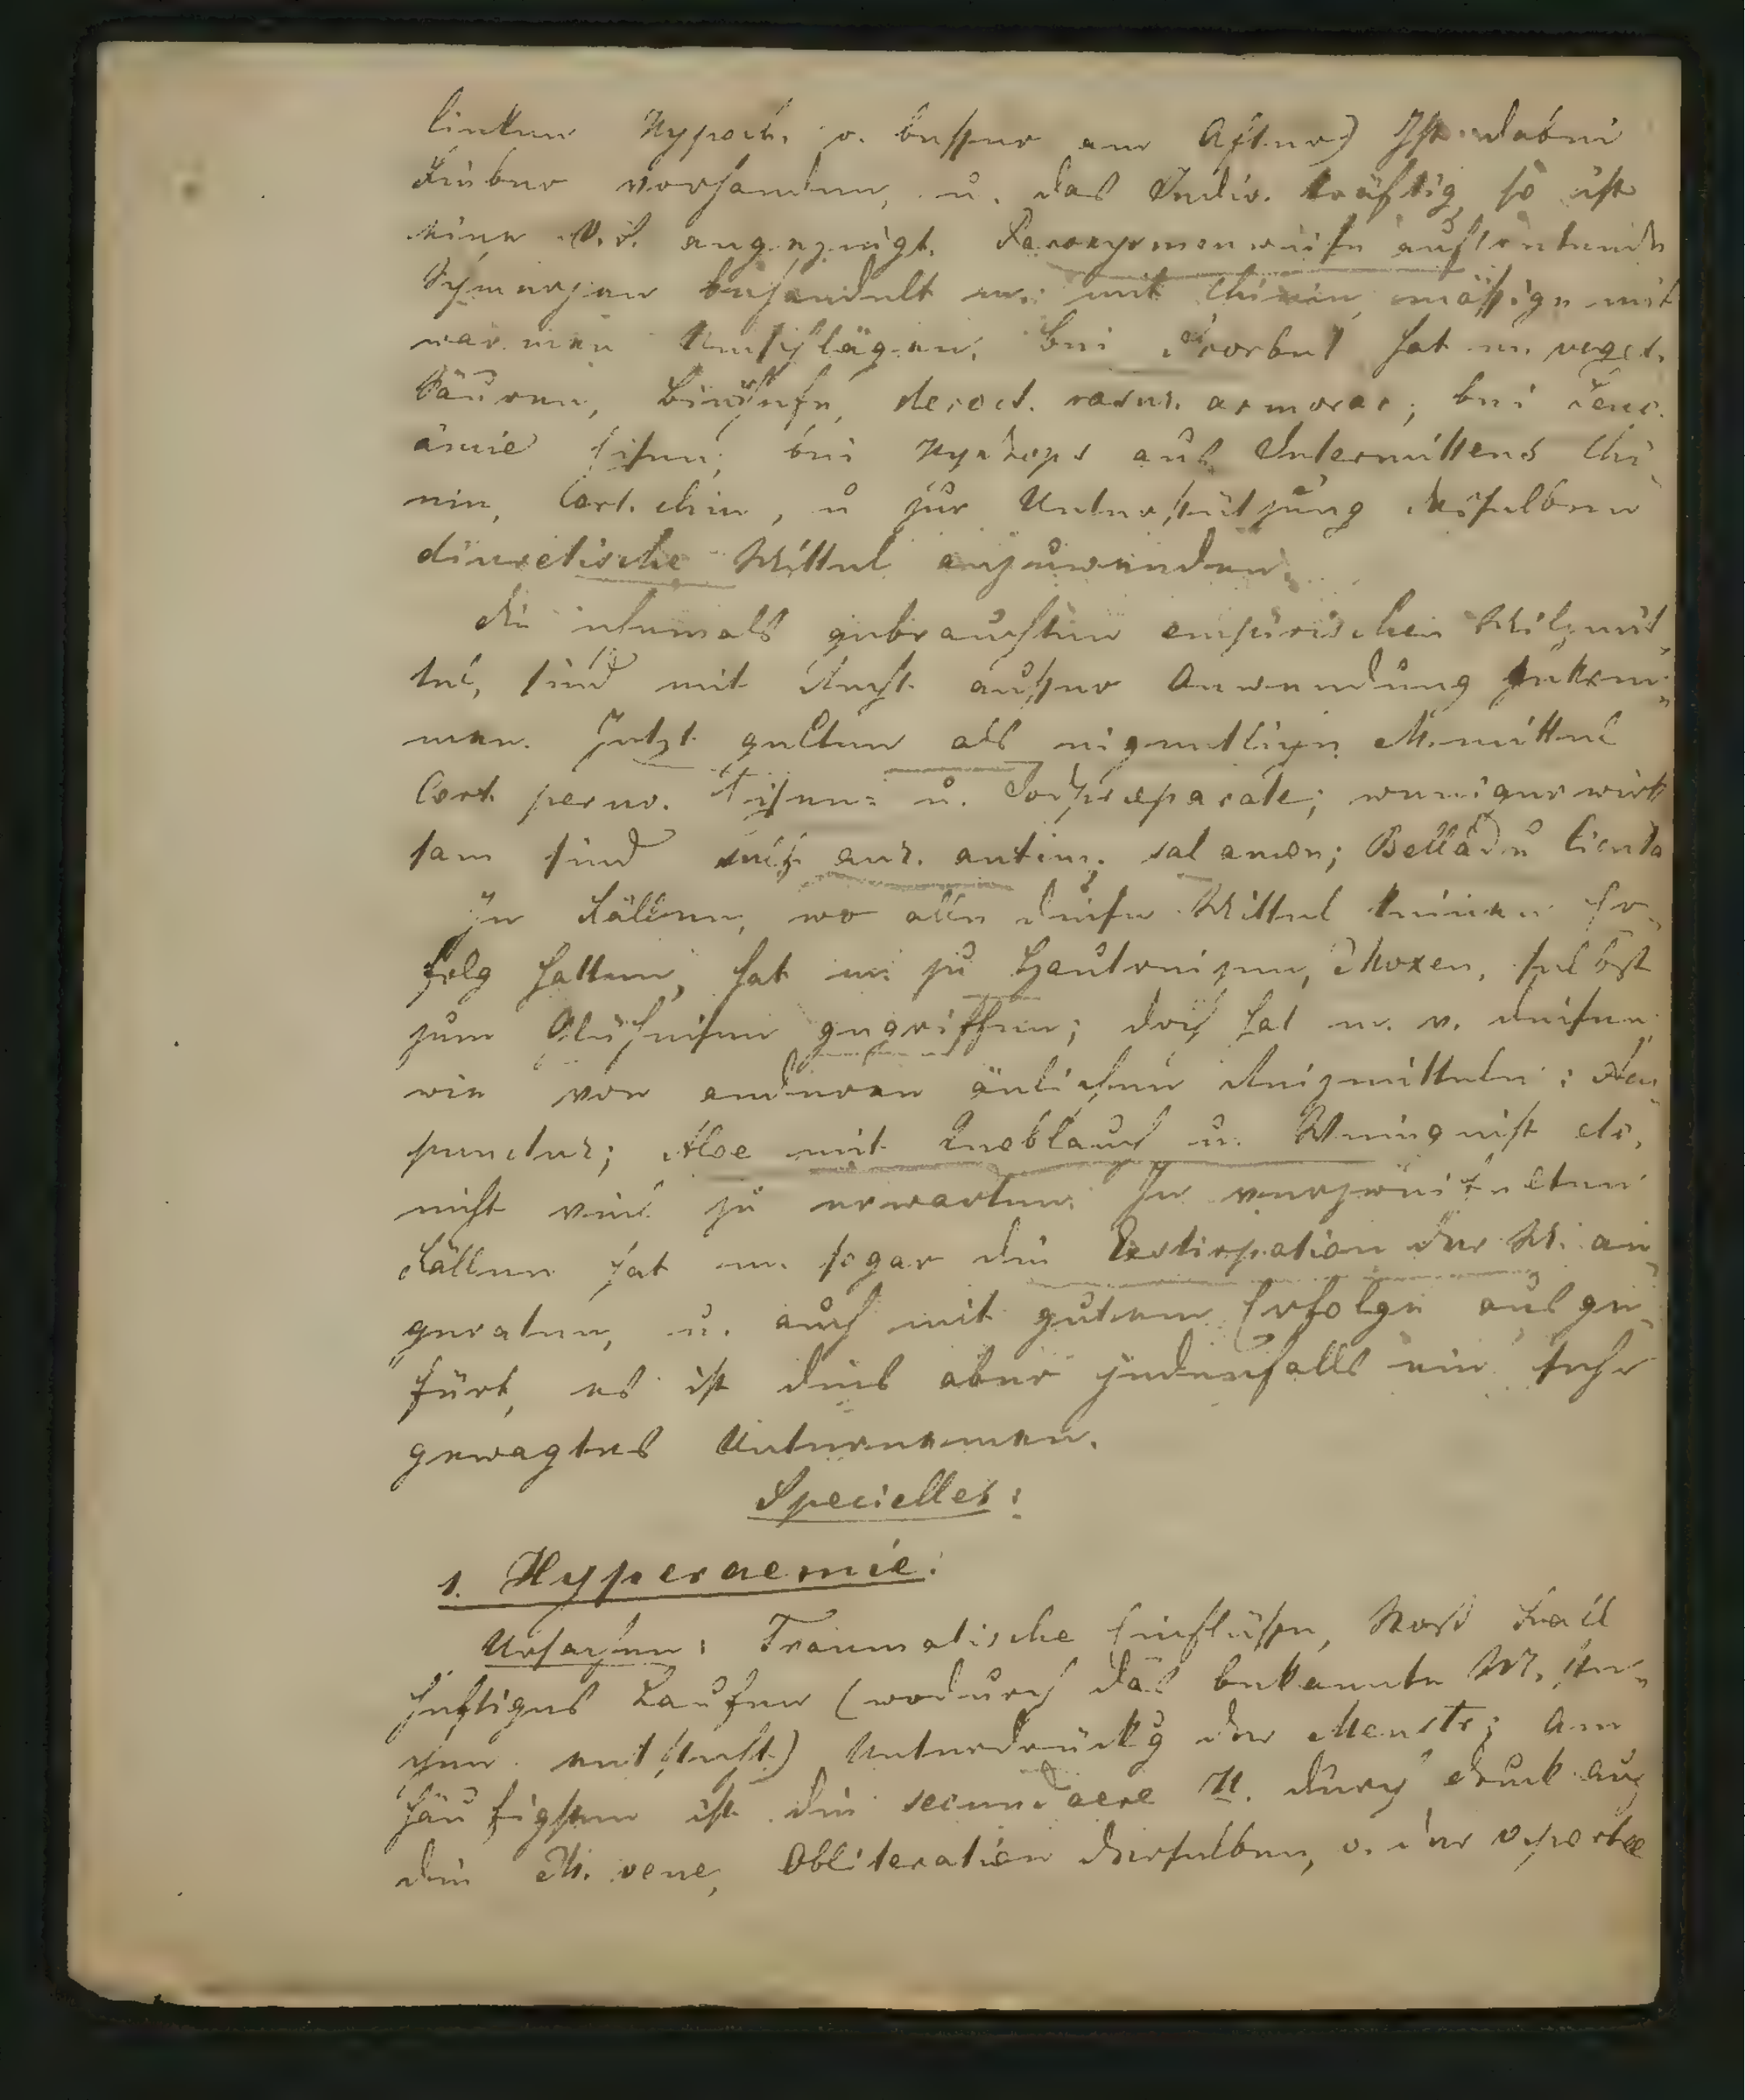 linken Hypoch. o. besser am After) Ist dabei
Fieber vorhanden, u. das Indiv. kräftig, so ist
eine V.S. angezeigt. Paroxysmenweise auftretende
Schmerzen behandelt m. mit Chinin, mässige mit
warmen Umschlägen. bei Scorbut hat m. veget.
Säuren, Bierhefe, decoct. armorac; bei
ämie Eisen; bei Hydrops aus Intermittens Chi
nin, Cort. chin, u zur Unterstützung desselben
diuretische Mittel anzuwenden.
Die ehemals gebrauchten empirischen Milzmit
tel, sind mit Recht ausser Anwendung gekom=
men. Jetzt gelten als eigentliche M.mittel
Cort. peruv. Eisen= u. Jodpräparate; weniger wirk
sam sind aur. antim; sal amon; Bellad u Cicuta
In Fällen, wo alle diese Mittel keinen Er=
folg hatten, hat m. zu Hautreizen, Moxen, selbst
zum Glüheisen gegriffen; doch hat m. v. diesen
wie von anderen änlichen Reizmitteln: Acu=
punctur; Aloe mit Knoblauch u. Weingeist etc.
nicht viel zu erwarten. In verzweifelten
Fällen hat m. sogar die Exstirpation der M. an=
geraten, u. auch mit gutem Erfolge ausge=
fürt, es ist dies aber jedenfalls ein sehr
gewagtes Unternemen.
Specielles:
1. Hyperaemie:
Ursachen: Traumatische Einflüsse, Stoss Fall
heftiges Laufen (wodurch das bekannte M. ste=
chen entsteht) Unterdrückg der Menstr; Am
häufigsten ist die secundaere H. durch Druck auf
die M. vene, Obliteration derselben, o. der V. portae